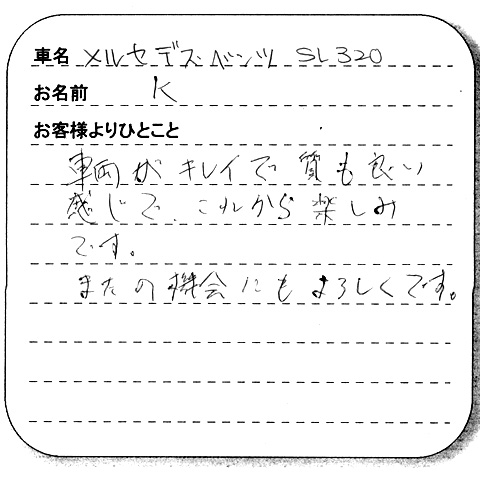 車名 メルセデス・ベンツ SL320
お名前 K
お客様よりひとこと
車両がキレイで質も良い
感じで、これから楽しみ
です。
またの機会にもよろしくです。